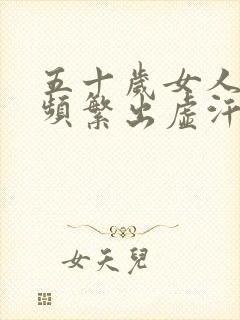 五十歲女人
頻繁出虛汗
女天兒